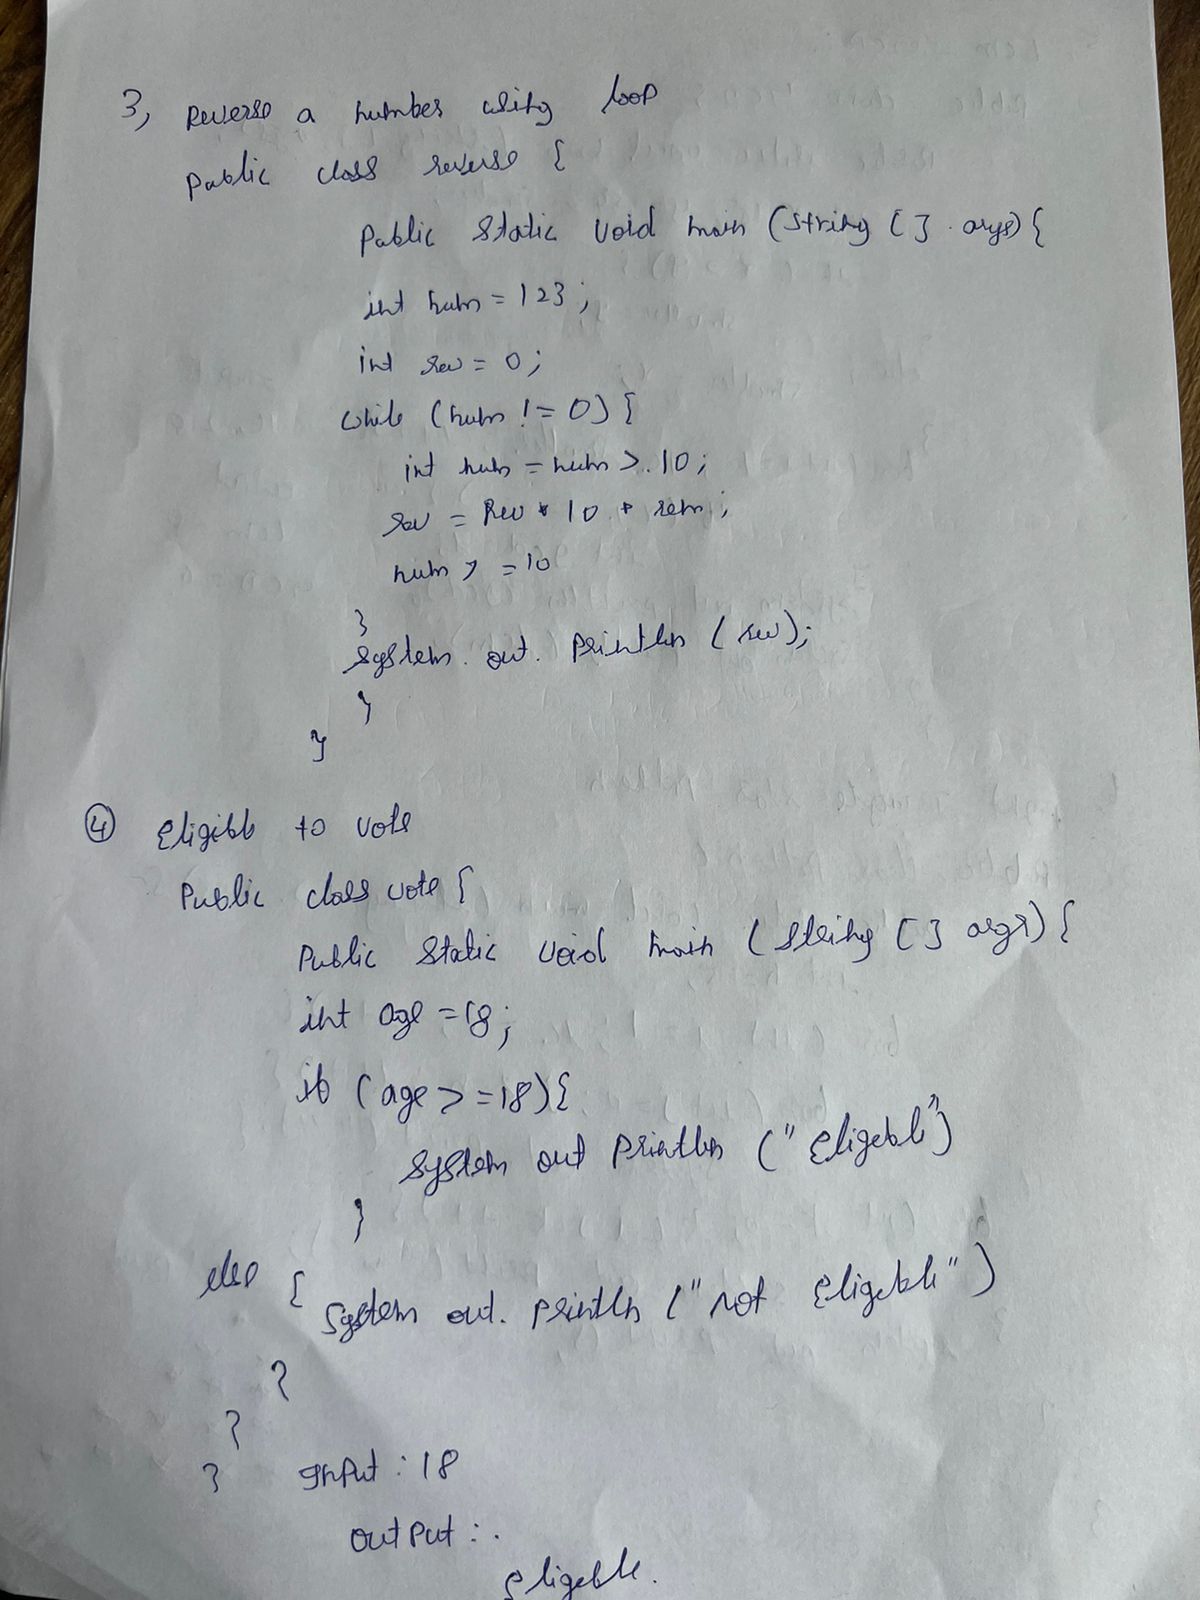 3, Reverse a number using loop
Public class reverse {
Public Static Void main (String [] args) {
int num = 123;
int rev = 0;
while (num != 0) {
int num = num >. 10;
rev = Rev * 10 + rem;
num > = 10
}
System. out. Println (rev);
}
}
4 Eligible to Vote
Public class vote {
Public Static Void main (String [] args) {
int age = 18;
if (age >= 18) {
System out Println ("Eligible")
}
else {
System out. Println ("not Eligible")
}
}
} Input : 18
Output :.
Eligible.